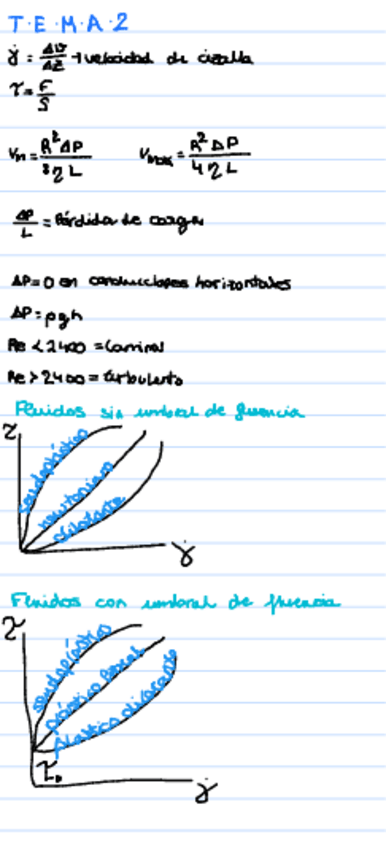 T.E.M.A.2
γ̇ = ΔV/ΔZ → velocidad de cizalla
τ = F/S
Vm = R² ΔP / 8 η L    Vmax = R² ΔP / 4 η L
ΔP/L = Pérdida de carga
ΔP = 0 en conducciones horizontales
ΔP = ρgh
Re < 2400 = Laminar
Re > 2400 = turbulento
Fluidos sin umbral de fluencia
τ
seudoplástico
newtoniano
dilatante
γ̇
Fluidos con umbral de fluencia
τ
seudoplástico
plástico
plástico dilatante
τ₀
γ̇